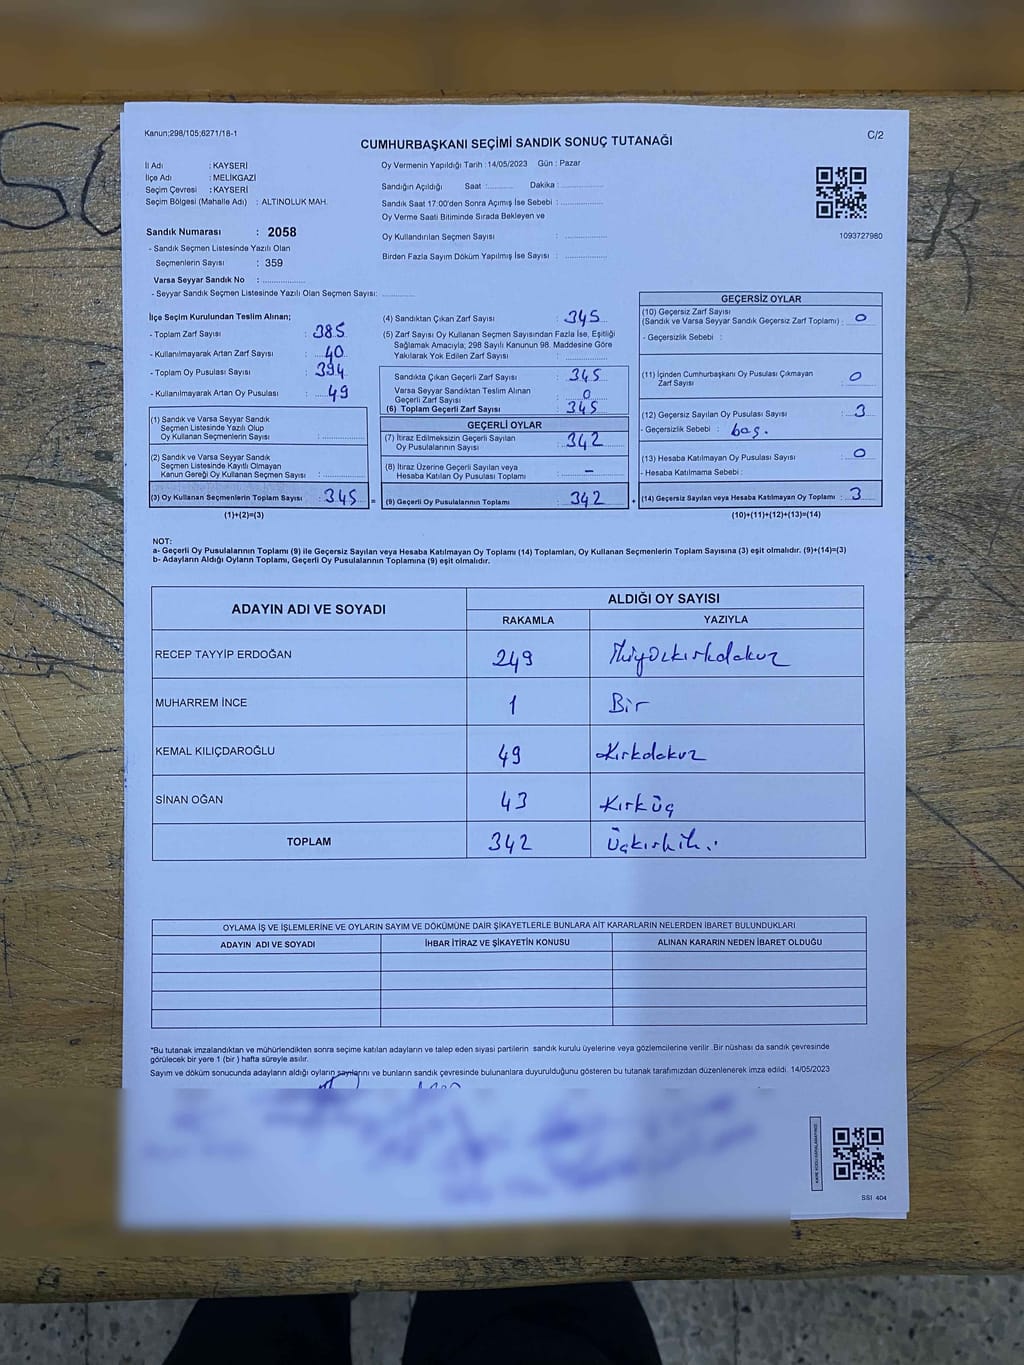 Kanun;298/105;6271/18-1
CUMHURBAŞKANI SEÇİMİ SANDIK SONUÇ TUTANAĞI
C/2
İl Adı : KAYSERİ
İlçe Adı : MELİKGAZİ
Seçim Çevresi : KAYSERİ
Seçim Bölgesi (Mahalle Adı) : ALTINOLUK MAH.
Oy Vermenin Yapıldığı Tarih :14/05/2023 Gün : Pazar
Sandığın Açıldığı Saat :.......... Dakika :................
Sandık Saat 17:00'den Sonra Açımış İse Sebebi :................
Oy Verme Saati Bitiminde Sırada Bekleyen ve
Oy Kullandırılan Seçmen Sayısı : ................
Birden Fazla Sayım Döküm Yapılmış İse Sayısı : ................
1093727980
Sandık Numarası : 2058
- Sandık Seçmen Listesinde Yazılı Olan
Seçmenlerin Sayısı : 359
Varsa Seyyar Sandık No : ................
- Seyyar Sandık Seçmen Listesinde Yazılı Olan Seçmen Sayısı: ............
İlçe Seçim Kurulundan Teslim Alınan;
- Toplam Zarf Sayısı : 385
- Kullanılmayarak Artan Zarf Sayısı : 40
- Toplam Oy Pusulası Sayısı : 394
- Kullanılmayarak Artan Oy Pusulası : 49
(1) Sandık ve Varsa Seyyar Sandık
Seçmen Listesinde Yazılı Olup
Oy Kullanan Seçmenlerin Sayısı : ................
(2) Sandık ve Varsa Seyyar Sandık
Seçmen Listesinde Kayıtlı Olmayan
Kanun Gereği Oy Kullanan Seçmen Sayısı : ................
(3) Oy Kullanan Seçmenlerin Toplam Sayısı : 345 =
(1)+(2)=(3)
(4) Sandıktan Çıkan Zarf Sayısı : 345
(5) Zarf Sayısı Oy Kullanan Seçmen Sayısından Fazla İse, Eşitliği
Sağlamak Amacıyla; 298 Sayılı Kanunun 98. Maddesine Göre
Yakılarak Yok Edilen Zarf Sayısı : ................
Sandıkta Çıkan Geçerli Zarf Sayısı : 345
Varsa Seyyar Sandıktan Teslim Alınan
Geçerli Zarf Sayısı : 0
(6) Toplam Geçerli Zarf Sayısı : 345
GEÇERLİ OYLAR
(7) İtiraz Edilmeksizin Geçerli Sayılan
Oy Pusulalarının Sayısı : 342
(8) İtiraz Üzerine Geçerli Sayılan veya
Hesaba Katılan Oy Pusulası Toplamı : -
(9) Geçerli Oy Pusulalarının Toplamı : 342 +
GEÇERSİZ OYLAR
(10) Geçersiz Zarf Sayısı
(Sandık ve Varsa Seyyar Sandık Geçersiz Zarf Toplamı) : 0
- Geçersizlik Sebebi :
(11) İçinden Cumhurbaşkanı Oy Pusulası Çıkmayan
Zarf Sayısı : 0
(12) Geçersiz Sayılan Oy Pusulası Sayısı : 3
- Geçersizlik Sebebi : boş.
(13) Hesaba Katılmayan Oy Pusulası Sayısı : 0
- Hesaba Katılmama Sebebi :
(14) Geçersiz Sayılan veya Hesaba Katılmayan Oy Toplamı : 3
(10)+(11)+(12)+(13)=(14)
NOT:
a- Geçerli Oy Pusulalarının Toplamı (9) ile Geçersiz Sayılan veya Hesaba Katılmayan Oy Toplamı (14) Toplamları, Oy Kullanan Seçmenlerin Toplam Sayısına (3) eşit olmalıdır. (9)+(14)=(3)
b- Adayların Aldığı Oyların Toplamı, Geçerli Oy Pusulalarının Toplamına (9) eşit olmalıdır.
ADAYIN ADI VE SOYADI ALDIĞI OY SAYISI
RAKAMLA YAZIYLA
RECEP TAYYİP ERDOĞAN 249 İkiyüzkırkdokuz
MUHARREM İNCE 1 Bir
KEMAL KILIÇDAROĞLU 49 Kırkdokuz
SİNAN OĞAN 43 Kırküç
TOPLAM 342
OYLAMA İŞ VE İŞLEMLERİNE VE OYLARIN SAYIM VE DÖKÜMÜNE DAİR ŞİKAYETLERLE BUNLARA AİT KARARLARIN NELERDEN İBARET BULUNDUKLARI
ADAYIN ADI VE SOYADI İHBAR İTİRAZ VE ŞİKAYETİN KONUSU ALINAN KARARIN NEDEN İBARET OLDUĞU
*Bu tutanak imzalandıktan ve mühürlendikten sonra seçime katılan adayların ve talep eden siyasi partilerin sandık kurulu üyelerine veya gözlemcilerine verilir .Bir nüshası da sandık çevresinde
görülecek bir yere 1 (bir ) hafta süreyle asılır.
Sayım ve döküm sonucunda adayların aldığı oyların sayılarını ve bunların sandık çevresinde bulunanlara duyurulduğunu gösteren bu tutanak tarafımızdan düzenlenerek imza edildi. 14/05/2023
SSI 404